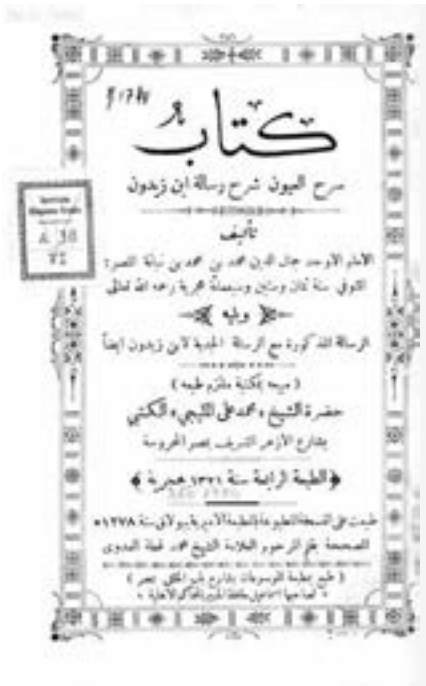 كتاب
سرح العيون شرح رسالة ابن زيدون
تأليف
الامام الاوحد جمال الدين محمد بن محمد بن نباتة المصرى
المتوفى سنة ثمان وستين وسبعمائة هجرية رحمه الله تعالى
وليه
الرسالة المذكورة مع الرسالة الجدية لابن زيدون ايضاً
( مبيعه بمكتبة ملتزم طبعه )
حضرة الشيخ محمد على المليجي الكتبي
بشارع الازهر الشريف بمصر المحروسة
الطبعة الرابعة سنة ١٣٢١ هجرية
طبعت على النسخة المطبوعة بالمطبعة الاميرية ببولاق سنة ١٢٧٨
المصححة بقلم المرحوم العلامة الشيخ محمد قطة العدوى
( طبع بمطبعة الموسوعات بشارع باب الخلق بمصر )
لصاحبها اسماعيل حافظ المحاكم الاهلية
A 36
VI